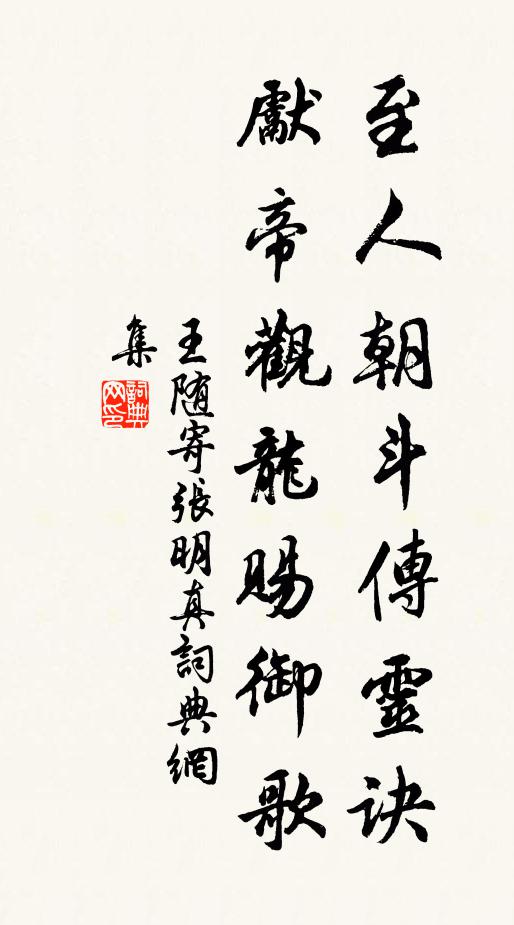 至人朝斗傳靈诀
獻帝觀龍賜御歌
王随寄張明真詞典網
集
詞典
网印